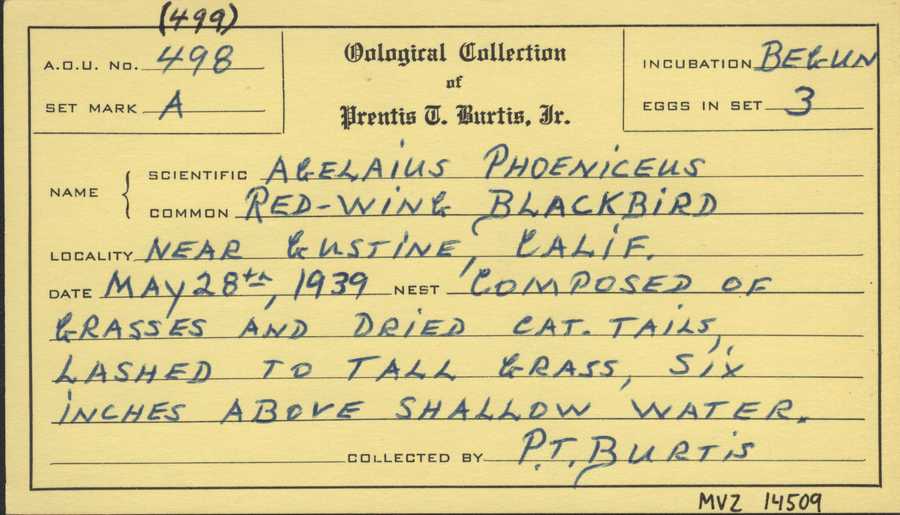 (499)
A.O.U. No. 498
Oological Collection
INCUBATION BEGUN
of
SET MARK A
EGGS IN SET 3
Prentis T. Burtis, Jr.
NAME { SCIENTIFIC AGELAIUS PHOENICEUS
COMMON RED-WING BLACKBIRD
LOCALITY NEAR GUSTINE, CALIF.
DATE MAY 28th, 1939 NEST COMPOSED OF
GRASSES AND DRIED CAT. TAILS,
LASHED TO TALL GRASS, SIX
INCHES ABOVE SHALLOW WATER.
COLLECTED BY P.T. BURTIS
MVZ 14509